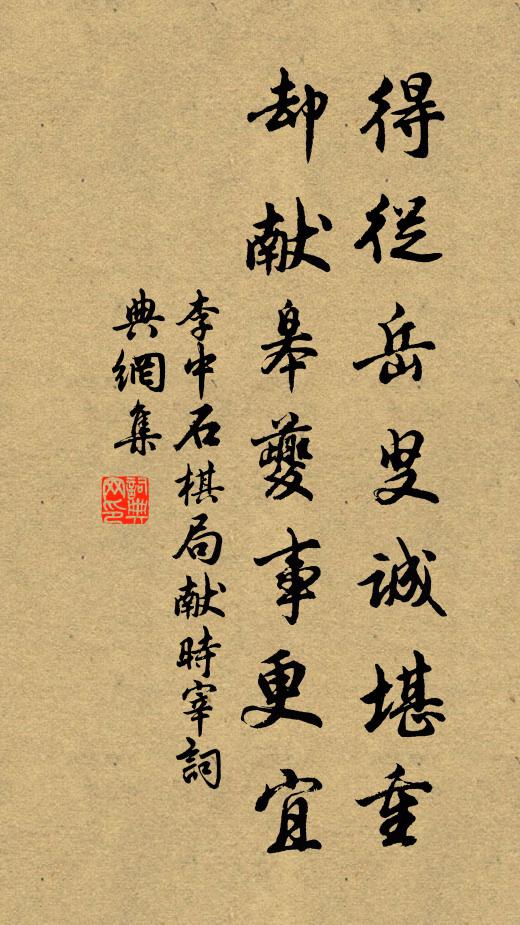 得従岳叟誠堪重
却献皋夔事更宜
李中石棋局献時宰詞
典網集
詞典網印